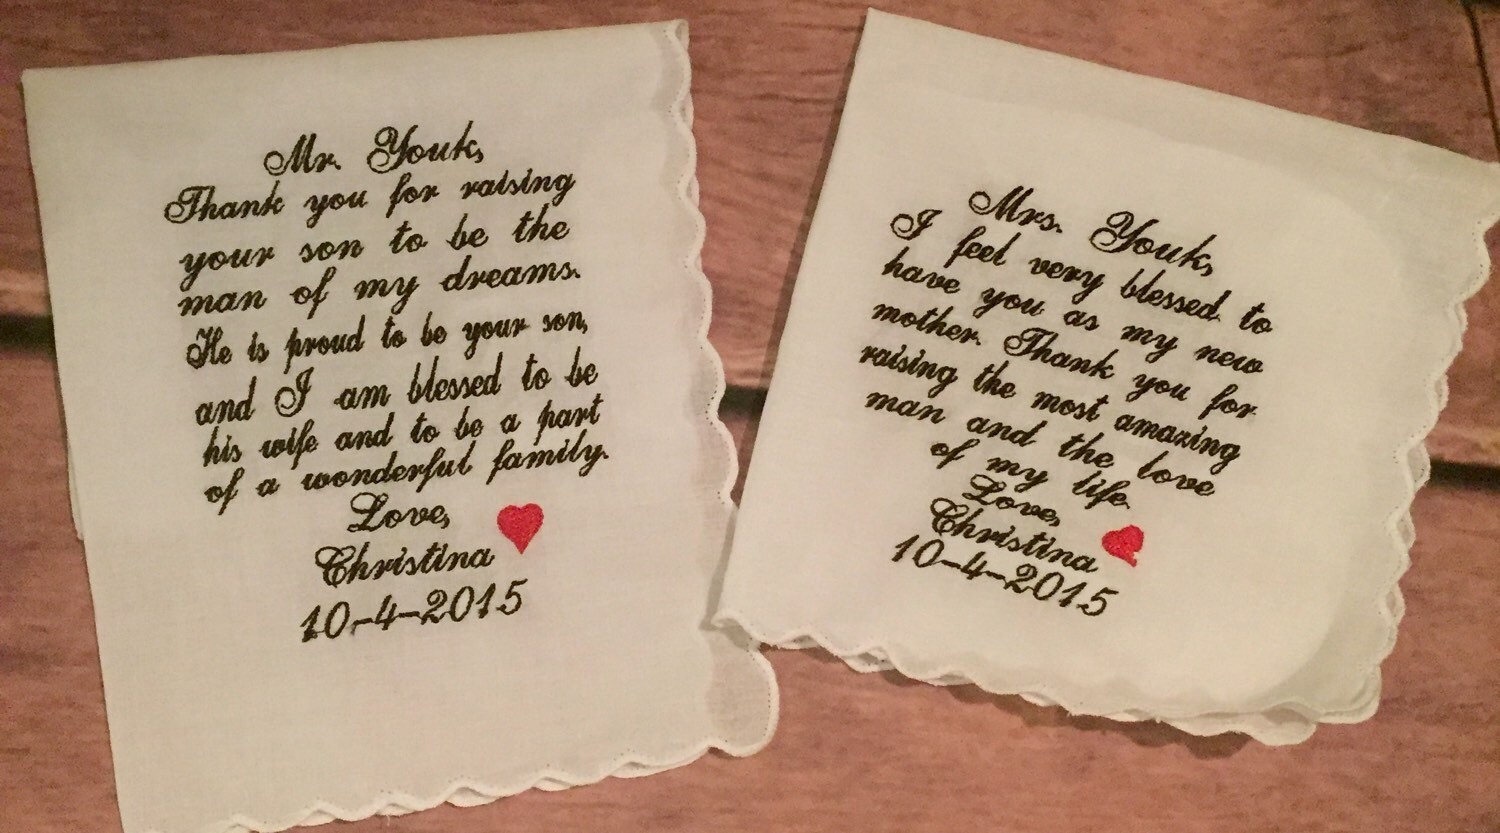 Mr. Youk,
Thank you for raising
your son to be the
man of my dreams.
He is proud to be your son,
and I am blessed to be
his wife and to be a part
of a wonderful family.
Love,
Christina
10-4-2015
Mrs. Youk,
I feel very blessed to
have you as my new
mother. Thank you for
raising the most amazing
man and the love
of my life.
Love,
Christina
10-4-2015